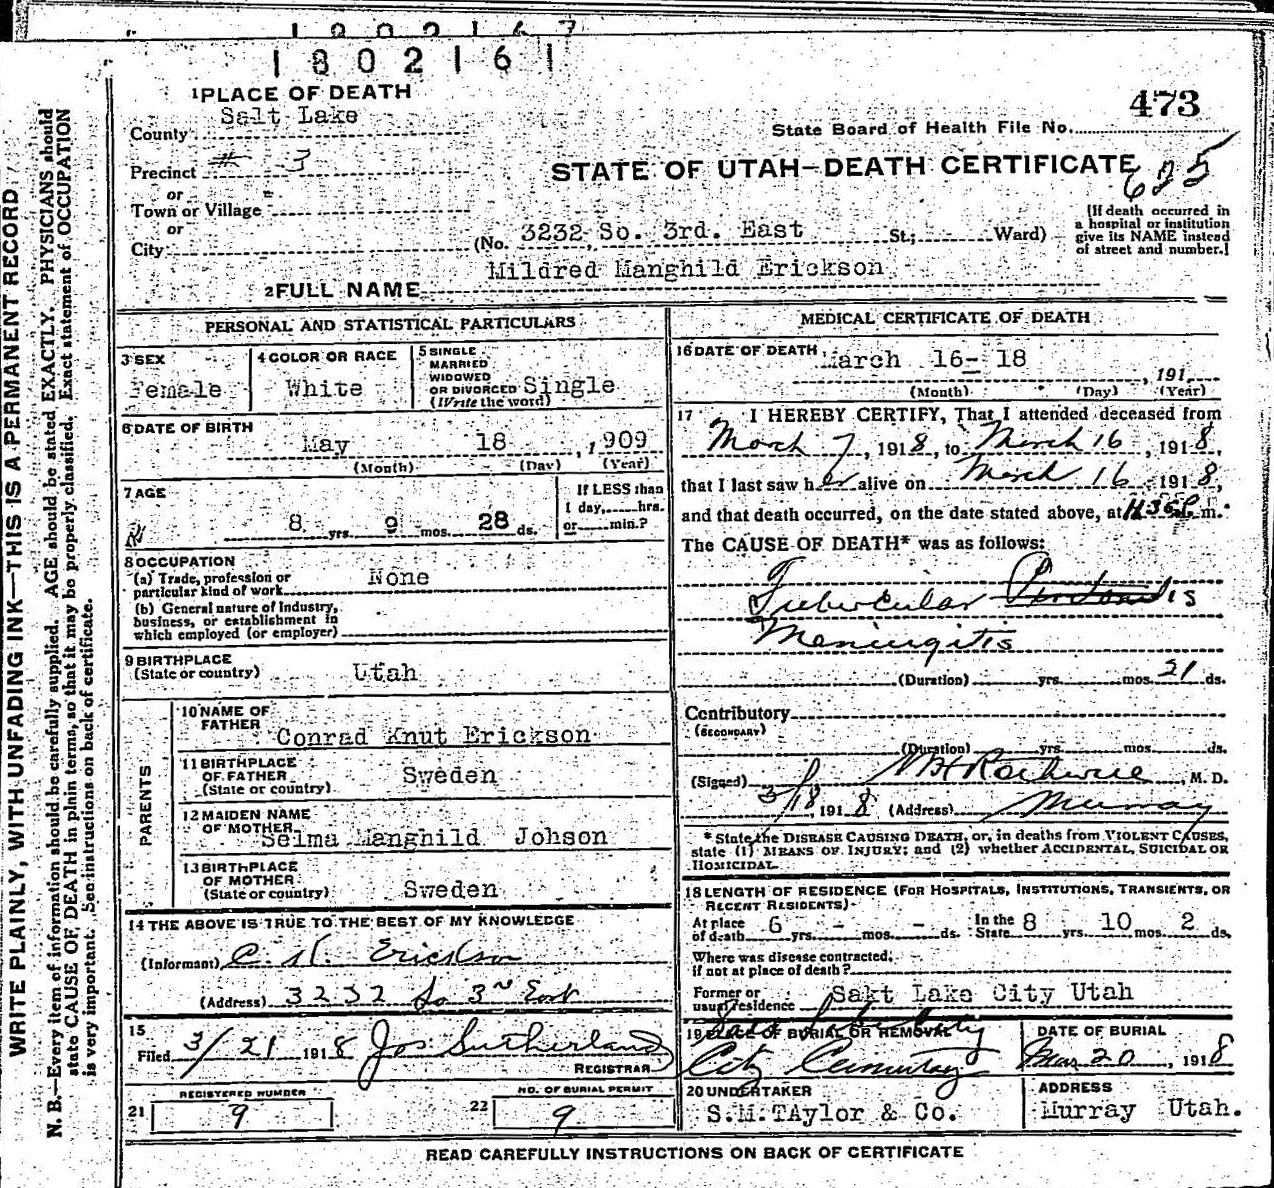 1802161
473
1 PLACE OF DEATH
County Salt Lake
State Board of Health File No.
Precinct # 3
STATE OF UTAH—DEATH CERTIFICATE
625
or
Town or Village
or
City
(No. 3232 So. 3rd. East St; Ward)
(If death occurred in
a hospital or institution
give its NAME instead
of street and number.)
2 FULL NAME Mildred Manghild Erickson
PERSONAL AND STATISTICAL PARTICULARS
3 SEX
Female
4 COLOR OR RACE
White
5 SINGLE
MARRIED
WIDOWED
OR DIVORCED Single
(Write the word)
6 DATE OF BIRTH
May 18 , 1909
(Month) (Day) (Year)
7 AGE
8 yrs. 9 mos. 28 ds.
If LESS than
1 day, hrs.
or min.?
8 OCCUPATION
(a) Trade, profession or
particular kind of work None
(b) General nature of Industry,
business, or establishment in
which employed (or employer)
9 BIRTHPLACE
(State or country) Utah
PARENTS
10 NAME OF
FATHER
Conrad Knut Erickson
11 BIRTHPLACE
OF FATHER
(State or country) Sweden
12 MAIDEN NAME
OF MOTHER
Selma Manghild Johson
13 BIRTHPLACE
OF MOTHER
(State or country) Sweden
14 THE ABOVE IS TRUE TO THE BEST OF MY KNOWLEDGE
(Informant) C. K. Erickson
(Address) 3232 So 3rd East
15
Filed 3/21 1918 Jos. Sutherland
REGISTRAR
REGISTERED NUMBER
21 9
NO. OF BURIAL PERMIT
22 9
MEDICAL CERTIFICATE OF DEATH
16 DATE OF DEATH March 16- 18
, 191
(Month) (Day) (Year)
17 I HEREBY CERTIFY, That I attended deceased from
March 7, 1918, to March 16, 1918,
that I last saw her alive on March 16 1918,
and that death occurred, on the date stated above, at m.
The CAUSE OF DEATH* was as follows:
Tubercular
Meningitis
(Duration) yrs. mos. 21 ds.
Contributory
(SECONDARY)
(Duration) yrs. mos. ds.
(Signed) , M. D.
3/18, 1918 (Address) Murray
* State the DISEASE CAUSING DEATH, or, in deaths from VIOLENT CAUSES,
state (1) MEANS OF INJURY; and (2) whether ACCIDENTAL, SUICIDAL OR
HOMICIDAL.
18 LENGTH OF RESIDENCE (FOR HOSPITALS, INSTITUTIONS, TRANSIENTS, OR
RECENT RESIDENTS)
At place
of death 6 yrs. - mos. - ds.
In the
State 8 yrs. 10 mos. 2 ds.
Where was disease contracted,
if not at place of death?
Former or
usual residence Sakt Lake City Utah
19 PLACE OF BURIAL OR REMOVAL
Salt Lake City
City Cemetary
DATE OF BURIAL
Mar 20, 1918
20 UNDERTAKER
S.M.TAylor & Co.
ADDRESS
Murray Utah.
READ CAREFULLY INSTRUCTIONS ON BACK OF CERTIFICATE
WRITE PLAINLY, WITH UNFADING INK—THIS IS A PERMANENT RECORD
N. B.—Every item of information should be carefully supplied. AGE should be stated EXACTLY. PHYSICIANS should
state CAUSE OF DEATH in plain terms, so that it may be properly classified. Exact statement of OCCUPATION
is very important. See instructions on back of certificate.